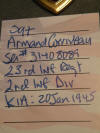 Sgt
Armand Corriveau
Ser# 31408089
23rd Inf Regt
2nd Inf Div
KIA: 20 Jan 1945